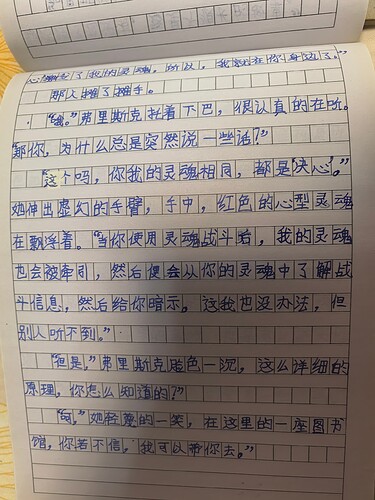 心"牵引了我的灵魂，所以，我就在你身边了。"
那人摊了摊手。
"哦。"弗里斯克托着下巴，很认真的在听。
"那你，为什么总是突然说一些话？"
"这个吗，你我的灵魂相同，都是'决心'。"
她伸出虚幻的手臂，手中，红色的心型灵魂
在飘浮着。"当你使用灵魂战斗后，我的灵魂
也会被牵引，然后便会从你的灵魂中了解战
斗信息，然后给你暗示。这我也没办法，但
别人听不到。"
"但是，"弗里斯克脸色一沉，这么详细的
原理，你怎么知道的？"
"呵，"她轻蔑的一笑，在这里的一座图书
馆，你若不信，我可以带你去。"